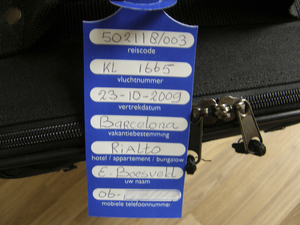 502118/003
reiscode
KL 1665
vluchtnummer
23-10-2009
vertrekdatum
Barcelona
vakantiebestemming
RiALTO
hotel / appartement / bungalow
E. Boesveld
uw naam
06-
mobiele telefoonnummer